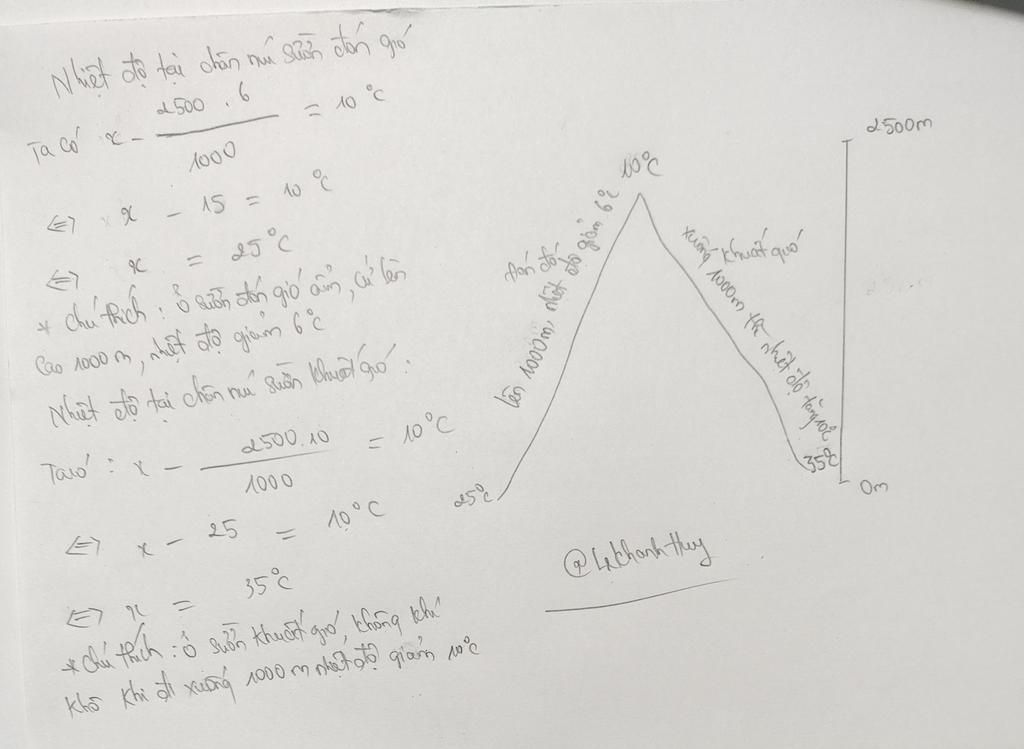 Nhiệt độ tại chân núi sườn đón gió
Ta có x - 2500 . 6 / 1000 = 10 °C
⇔ x - 15 = 10 °C
⇔ x = 25 °C
* Chú thích : ở sườn đón gió ẩm, cứ lên
cao 1000 m, nhiệt độ giảm 6 °C
Nhiệt độ tại chân núi sườn khuất gió :
Ta có : x - 2500 . 10 / 1000 = 10 °C
⇔ x - 25 = 10 °C
⇔ x = 35 °C
* Chú thích : ở sườn khuất gió, không khí
khô khi đi xuống 1000 m nhiệt độ giảm 10 °C
2500m
10°C
lên 1000m, nhiệt độ giảm 6°C
xuống khuất gió
1000m thì nhiệt độ tăng 10°C
25°C
35°C
0m